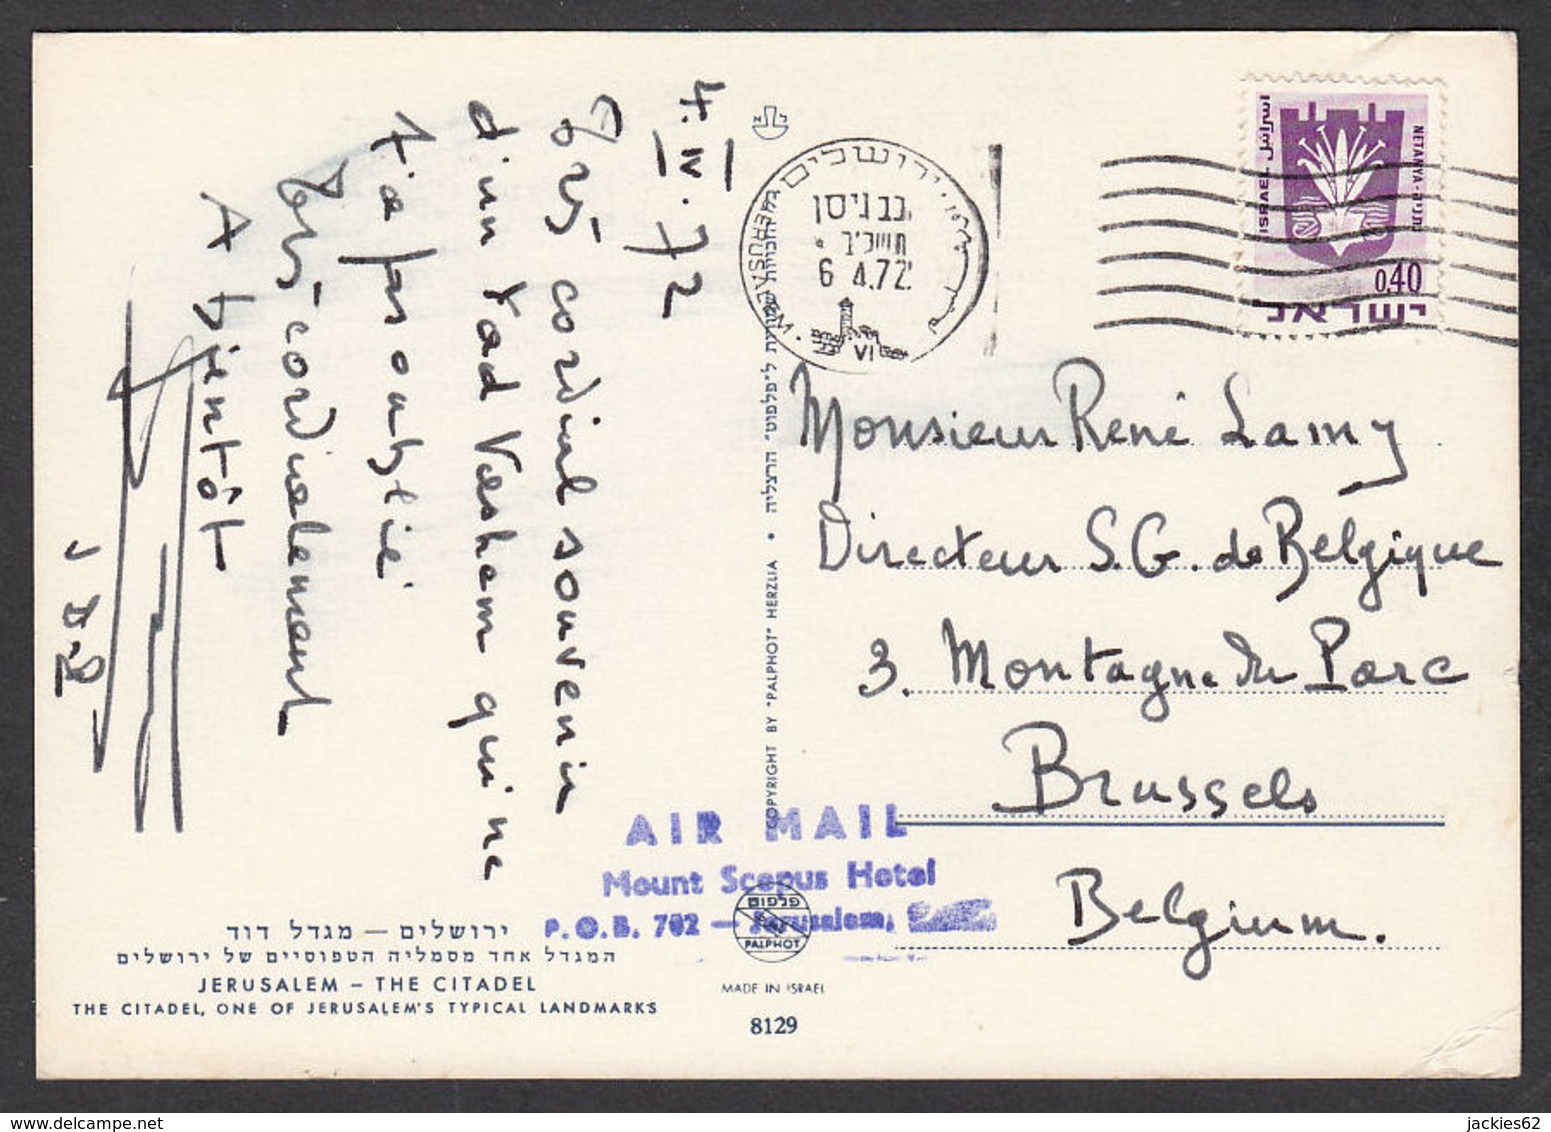 4.IV.72
Très cordial souvenir
d'un Yad Vashem qui ne
t'a pas oublié
Très cordialement
A bientôt
ירושלים
JERUSALEM
כב ניסן
תשל"ב
6 4.72
VI
ISRAEL اسرائيل
NETANYA - נתניה
0.40
ישראל
Monsieur René Lamy
Directeur S.G. de Belgique
3. Montagne du Parc
Brussels
Belgium.
COPYRIGHT BY "PALPHOT" HERZLIA • כל הזכויות שמורות ל"פלפוט" הרצליה
AIR MAIL
Mount Scopus Hotel
P.O.B. 702 — Jerusalem,
פלפוט
PALPHOT
MADE IN ISRAEL
8129
ירושלים — מגדל דוד
המגדל אחד מסמליה הטפוסיים של ירושלים
JERUSALEM – THE CITADEL
THE CITADEL, ONE OF JERUSALEM'S TYPICAL LANDMARKS
jackies62